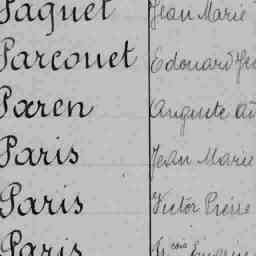 Paquet Jean Marie
Parcouet Edouard
Paren Auguste
Paris Jean Marie
Paris Victor Pierre
Paris Fr.çois Eugène